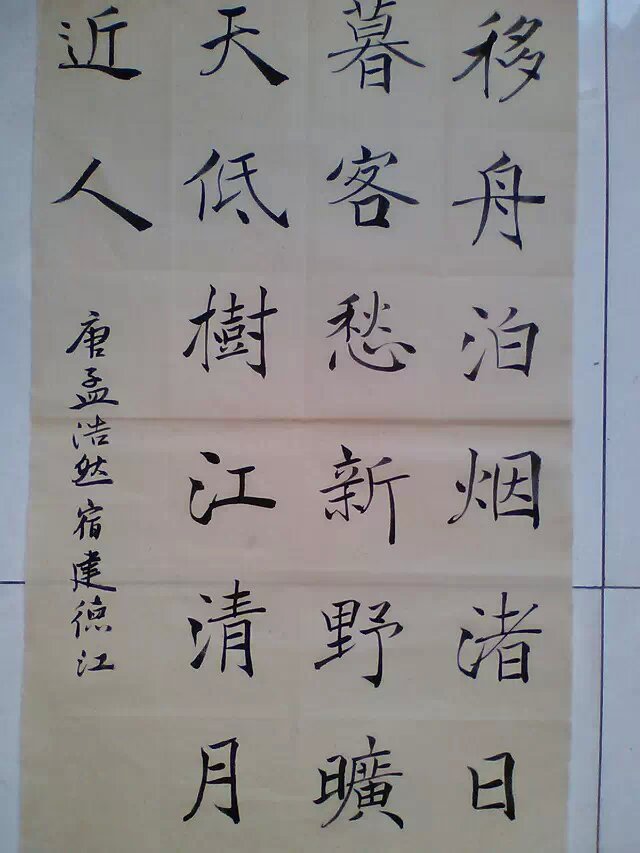 移舟泊烟渚日
暮客愁新野曠
天低樹江清月
近人
唐孟浩然宿建德江